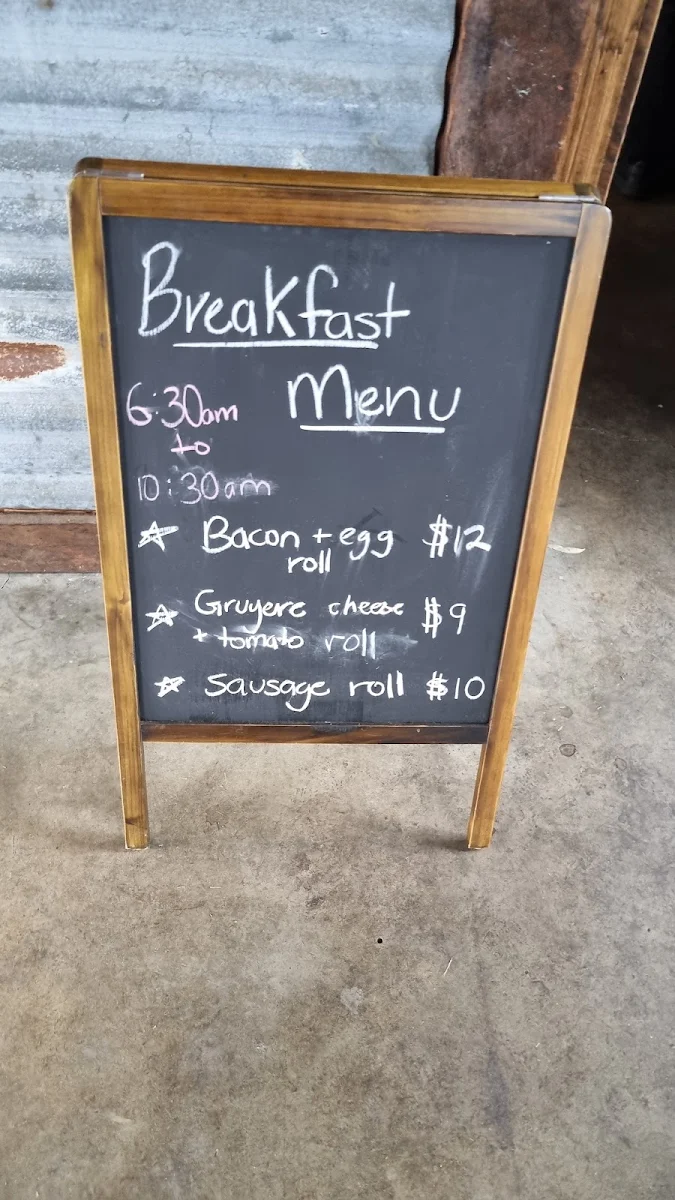 Breakfast
Menu
6:30am
to
10:30am
☆ Bacon + egg $12
roll
☆ Gruyere cheese $9
+ tomato roll
☆ Sausage roll $10